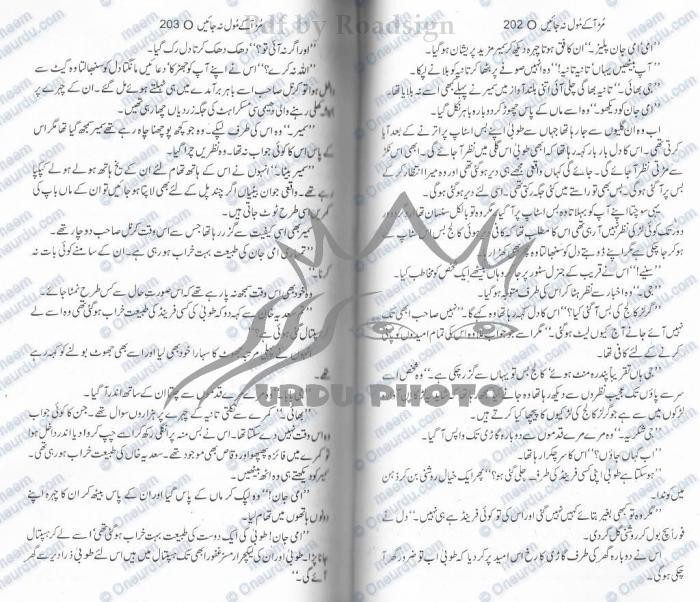 202 O مڑ آکے مُول نہ جائیں
”امی امی جان پلیز۔“ ان کا فق ہوتا چہرہ دیکھ کر سمیر مزید پریشان ہو گیا۔
”آپ بیٹھیں یہاں‘ تانیہ تانیہ!“ وہ انہیں صوفے پر بٹھا کر تانیہ کو بلانے لپکا۔
”جی بھائی۔“ تانیہ بھاگی چلی آئی اتنی بلند آواز میں سمیر نے پہلے کبھی اسے نہ بلایا تھا۔
”امی جان کو دیکھو۔“ وہ اسے ماں کے پاس چھوڑ کر دوبارہ باہر نکل گیا۔
اب وہ ان گلیوں سے جا رہا تھا جہاں سے طوبیٰ اپنے بس اسٹاپ پر اترنے کے بعد آیا
کرتی تھی۔ اس کا دل بار بار کہہ رہا تھا کہ ابھی طوبیٰ اس گلی میں نظر آ جائے گی۔ ابھی اس نکڑ
سے مڑتی نظر آ جائے گی۔ جائے گی کہاں واقعی مجھے ہی دیر ہو گئی تھی اور وہ میرا انتظار کر کے
بس پر آ گئی ہو گی۔ بس بھی تو راستے میں کئی جگہ رکتی تھی۔ اسی لئے دیر ہو گئی ہو گی۔
یہی سوچتا اپنے آپ کو بہلاتا وہ بس اسٹاپ پر آ گیا۔ مگر وہ تو بالکل سنسان تھا۔ دور دور
دور تک کوئی لڑکی نظر نہیں آ رہی تھی اس کا مطلب تھا کہ کافی دیر ہوئی کالج بس اس اسٹاپ سے
ہو کر جا چکی ہے مگر اپنے ڈوبتے دل کو سنبھالتا وہ پھر بھی کھڑا رہا۔
”سنیے!“ اس نے قریب کے جنرل سٹور پر جا کے وہاں بیٹھے ایک شخص کو مخاطب کیا۔
”جی۔“ وہ اخبار سے نظر ہٹا کر اس کی طرف متوجہ ہو گیا۔
”گرلز کالج کی بس آ گئی کیا؟“ اس کا دل کہہ رہا تھا وہ کہے گا۔ ”نہیں صاحب ابھی تک
نہیں آئی جانے آج کیوں لیٹ ہو گئی۔“ مگر اسے جو جواب ملا وہ اس کی تمام امیدوں کو
کرنے کے لئے کافی تھا۔
”جی ہاں تقریباً پندرہ منٹ ہوئے کالج بس تو یہاں سے گزر چکی ہے۔“ وہ شخص اسے
سر سے پاؤں تک عجیب نظروں سے دیکھ رہا تھا وہ جانے کیا سمجھ رہا تھا شاید یہ کہ کا ان
لڑکوں میں سے ہے جو گرلز کالج کی لڑکیوں کا پیچھا کیا کرتے ہیں۔
”جی شکریہ۔“ وہ مرے مرے قدموں سے دوبارہ گاڑی تک واپس آ گیا۔
”اب کہاں جاؤں؟“ اس کا سر چکرا رہا تھا۔
”ہو سکتا ہے طوبیٰ اپنی کسی فرینڈ کی طرف چلی گئی ہو؟“ پھر ایک خیال روشنی بن کر ذہن
میں کوندا۔
”مگر وہ تو کبھی بغیر بتائے کہیں نہیں گئی اور اس کی تو کوئی فرینڈ ہے ہی نہیں۔“ دل نے
فوراً ہی بول کر روشنی گل کر دی۔
اس نے دوبارہ گھر کی طرف گاڑی کا رخ اس امید پر کر دیا کہ طوبیٰ اب تو ضرور گھر آ
چکی ہو گی۔
203 O مڑ آکے مُول نہ جائیں
”اور اگر نہ آئی تو؟“ دھک دھک کرتا دل رک گیا۔
”اللہ نہ کرے؟“ اس نے اپنے آپ کو جھڑکا‘ دعائیں مانگتا دل کو سنبھالتا وہ گیٹ سے
داخل ہوا تو کرنل صاحب اسے باہر برآمدے میں ہی ٹہلتے ہوئے مل گئے۔ ان کے چہرے پر
ہمیشہ کھلی رہنے والی دھیمی سی مسکراہٹ کی جگہ زردیاں تھیں چھا رہی تھیں۔
”سمیر۔“ وہ اس کی طرف لپکے۔ وہ جو کچھ پوچھنا چاہ رہے تھے سمیر سمجھ گیا تھا مگر اس
کے پاس اس کا کوئی جواب نہ تھا۔ وہ نظریں چرا گیا۔
”سمیر بیٹا۔“ انہوں نے اس کے ہاتھ تھام لئے ان کے یخ ہاتھ ہولے ہولے کپکپا
رہے تھے۔ واقعی جوان بیٹیاں اگر چند پل کے لئے بھی لاپتا ہو جائیں تو ان کے ماں باپ کی
کمریں اسی طرح ٹوٹ جاتی ہیں۔
سمیر بھی اسی کیفیت سے گزر رہا تھا جس سے اس وقت کرنل صاحب دوچار تھے۔
”تمہاری امی جان کی طبیعت بہت خراب ہو رہی ہے۔ ان کے سامنے کوئی بات نہ
کرنا۔“
وہ خود بھی اس وقت سمجھ نہ پا رہے تھے کہ اس صورتِ حال سے کس طرح نمٹا جائے۔
سعدیہ خان سے کہہ دو کہ طوبیٰ کی کسی فرینڈ کی طبیعت خراب ہو گئی تھی وہ اسے لے
ہسپتال گئی ہوئی ہے؟“
انہوں نے پہلی مرتبہ جھوٹ کا سہارا خود بھی لیا اور اسے بھی جھوٹ بولنے کو کہہ رہے
تھے۔
”جی بابا۔“ وہ مرے مرے قدموں سے چلتا ان کے ساتھ اندر آ گیا۔
”بھائی۔“ کمرے سے نکلتی تانیہ کے چہرے پر ہزاروں سوال تھے۔ جن کا کوئی جواب
وہ اس وقت نہیں دے سکتا تھا۔ اس نے بس منہ پر انگلی رکھ کر اسے چپ کروا دیا اندر داخل ہوا
تو کمرے میں فائزہ پھپھو اور وقاص بھی موجود تھے۔ سعدیہ خان کی طبیعت خراب ہو رہی تھی۔
سمیر کو دیکھتے ہی وہ اٹھ بیٹھیں۔
”امی جان!“ وہ لپک کر ماں کے پاس گیا اور ان کے پاس بیٹھ کر ان کا چہرہ اپنے
دونوں ہاتھوں میں تھام لیا۔
”امی جان! طوبیٰ کی ایک دوست کی طبیعت بہت خراب ہو گئی تھی‘ اسے لے کر ہسپتال
جانا پڑا۔ طوبیٰ اور ان کی لیکچرار مسز غفور ابھی تک ہسپتال میں ہیں اس لئے طوبیٰ ذرا دیر سے گھر
آئے گی۔“
Pdf by Roadsign
URDU PHOTO
Oneurdu.com